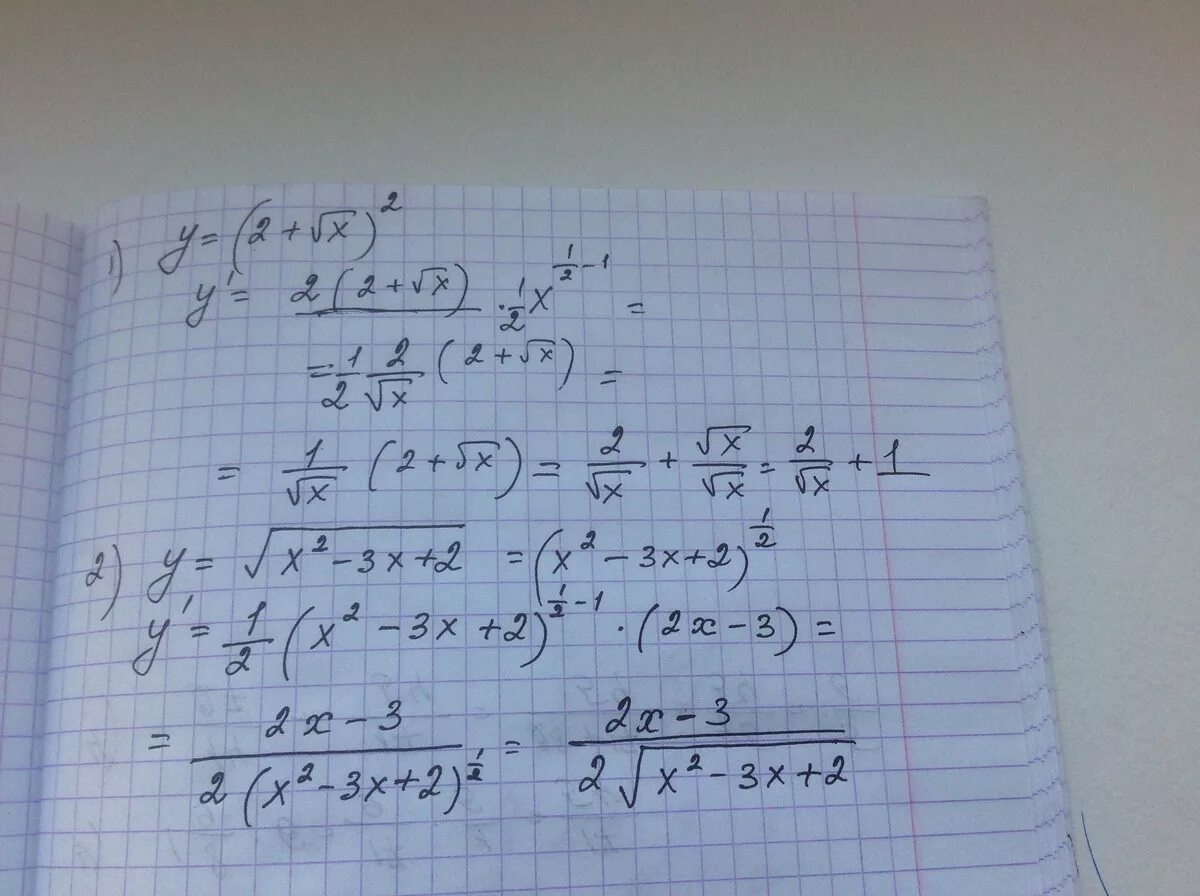 1) y = (2 + √x)²
y' = 2(2 + √x) · 1/2 x^(1/2 − 1) =
= 1/2 2/√x (2 + √x) =
= 1/√x (2 + √x) = 2/√x + √x/√x = 2/√x + 1
2) y = √(x² − 3x + 2) = (x² − 3x + 2)^(1/2)
y' = 1/2 (x² − 3x + 2)^(1/2 − 1) · (2x − 3) =
= (2x − 3)/(2(x² − 3x + 2)^(1/2)) = (2x − 3)/(2√(x² − 3x + 2))